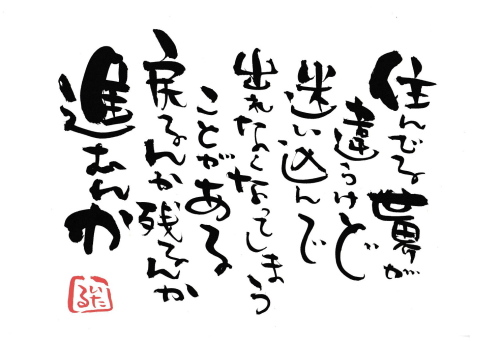 住んでる世界が
違うけど
迷い込んで
出れなくなってしまう
ことがある
戻るんか残るんか
進むんか